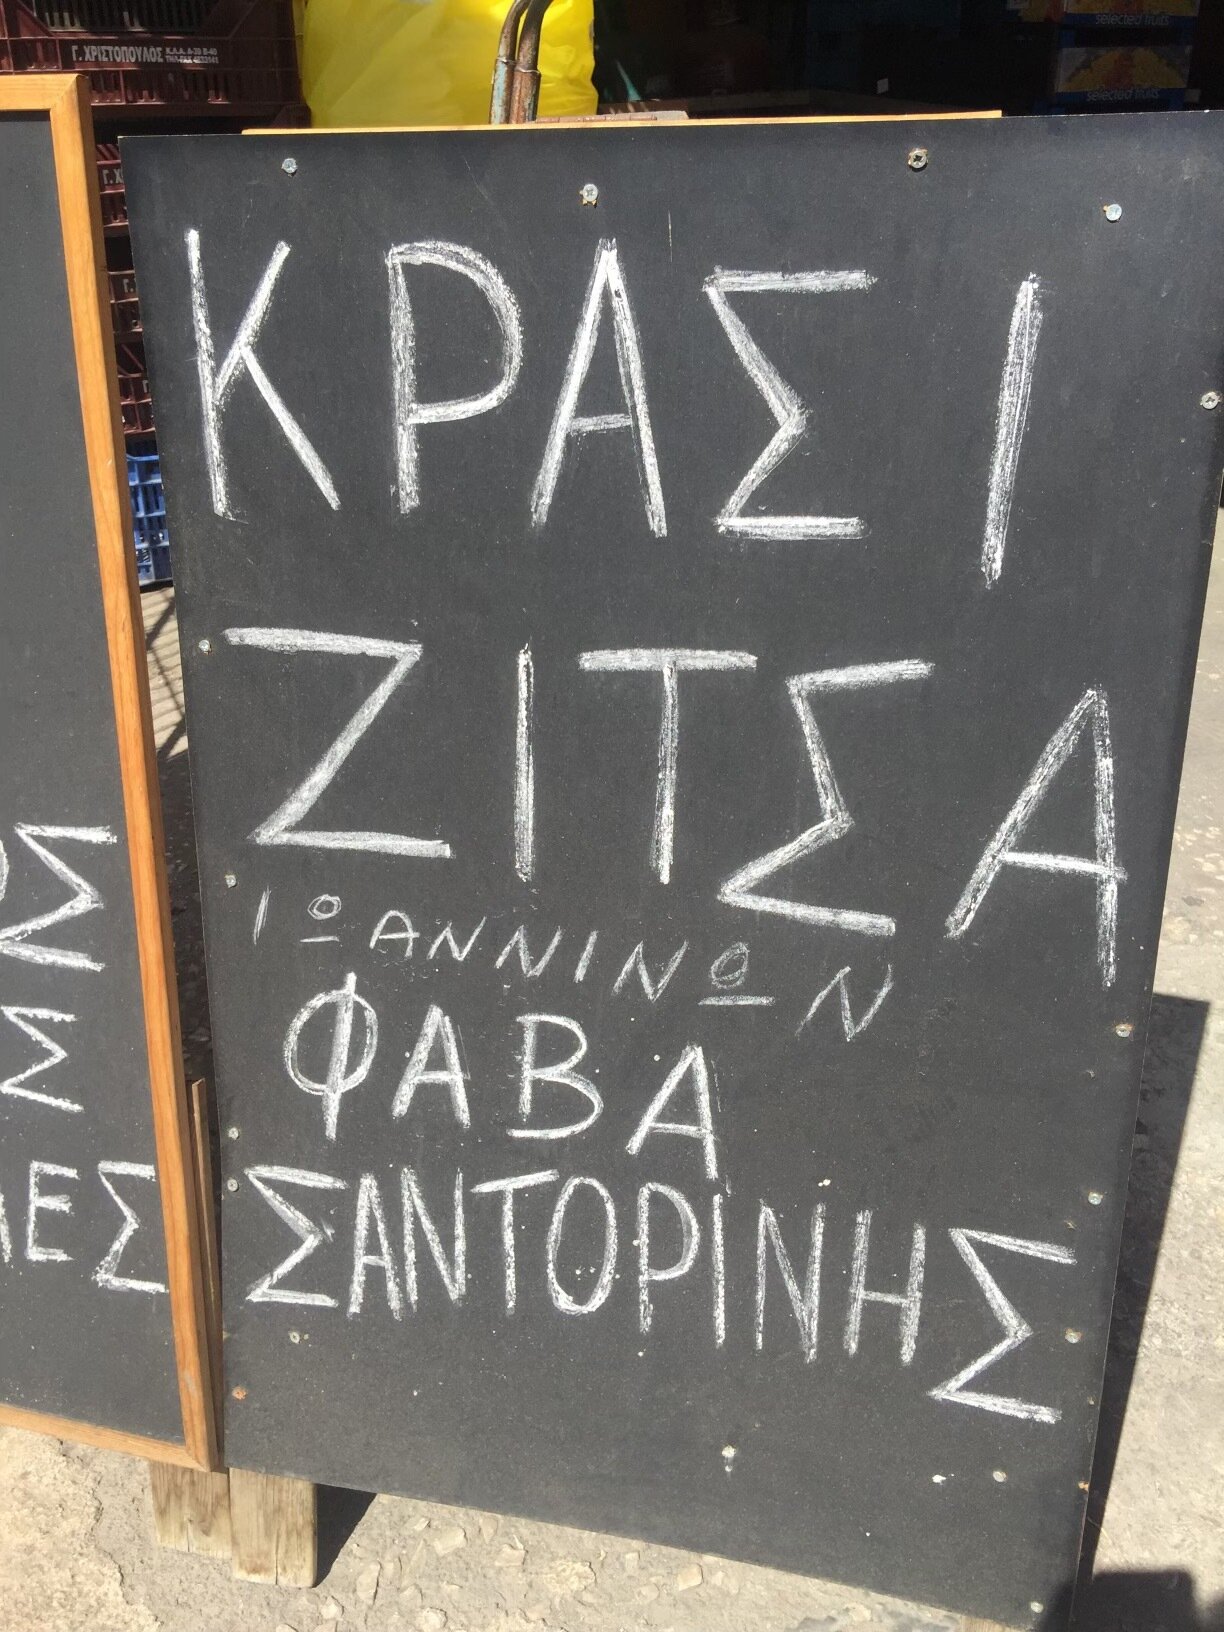 Γ. ΧΡΙΣΤΟΠΟΥΛΟΣ
selected fruits
selected fruits
ΚΡΑΣΙ
ΖΙΤΣΑ
ΙΩΑΝΝΙΝΩΝ
ΦΑΒΑ
ΣΑΝΤΟΡΙΝΗΣ